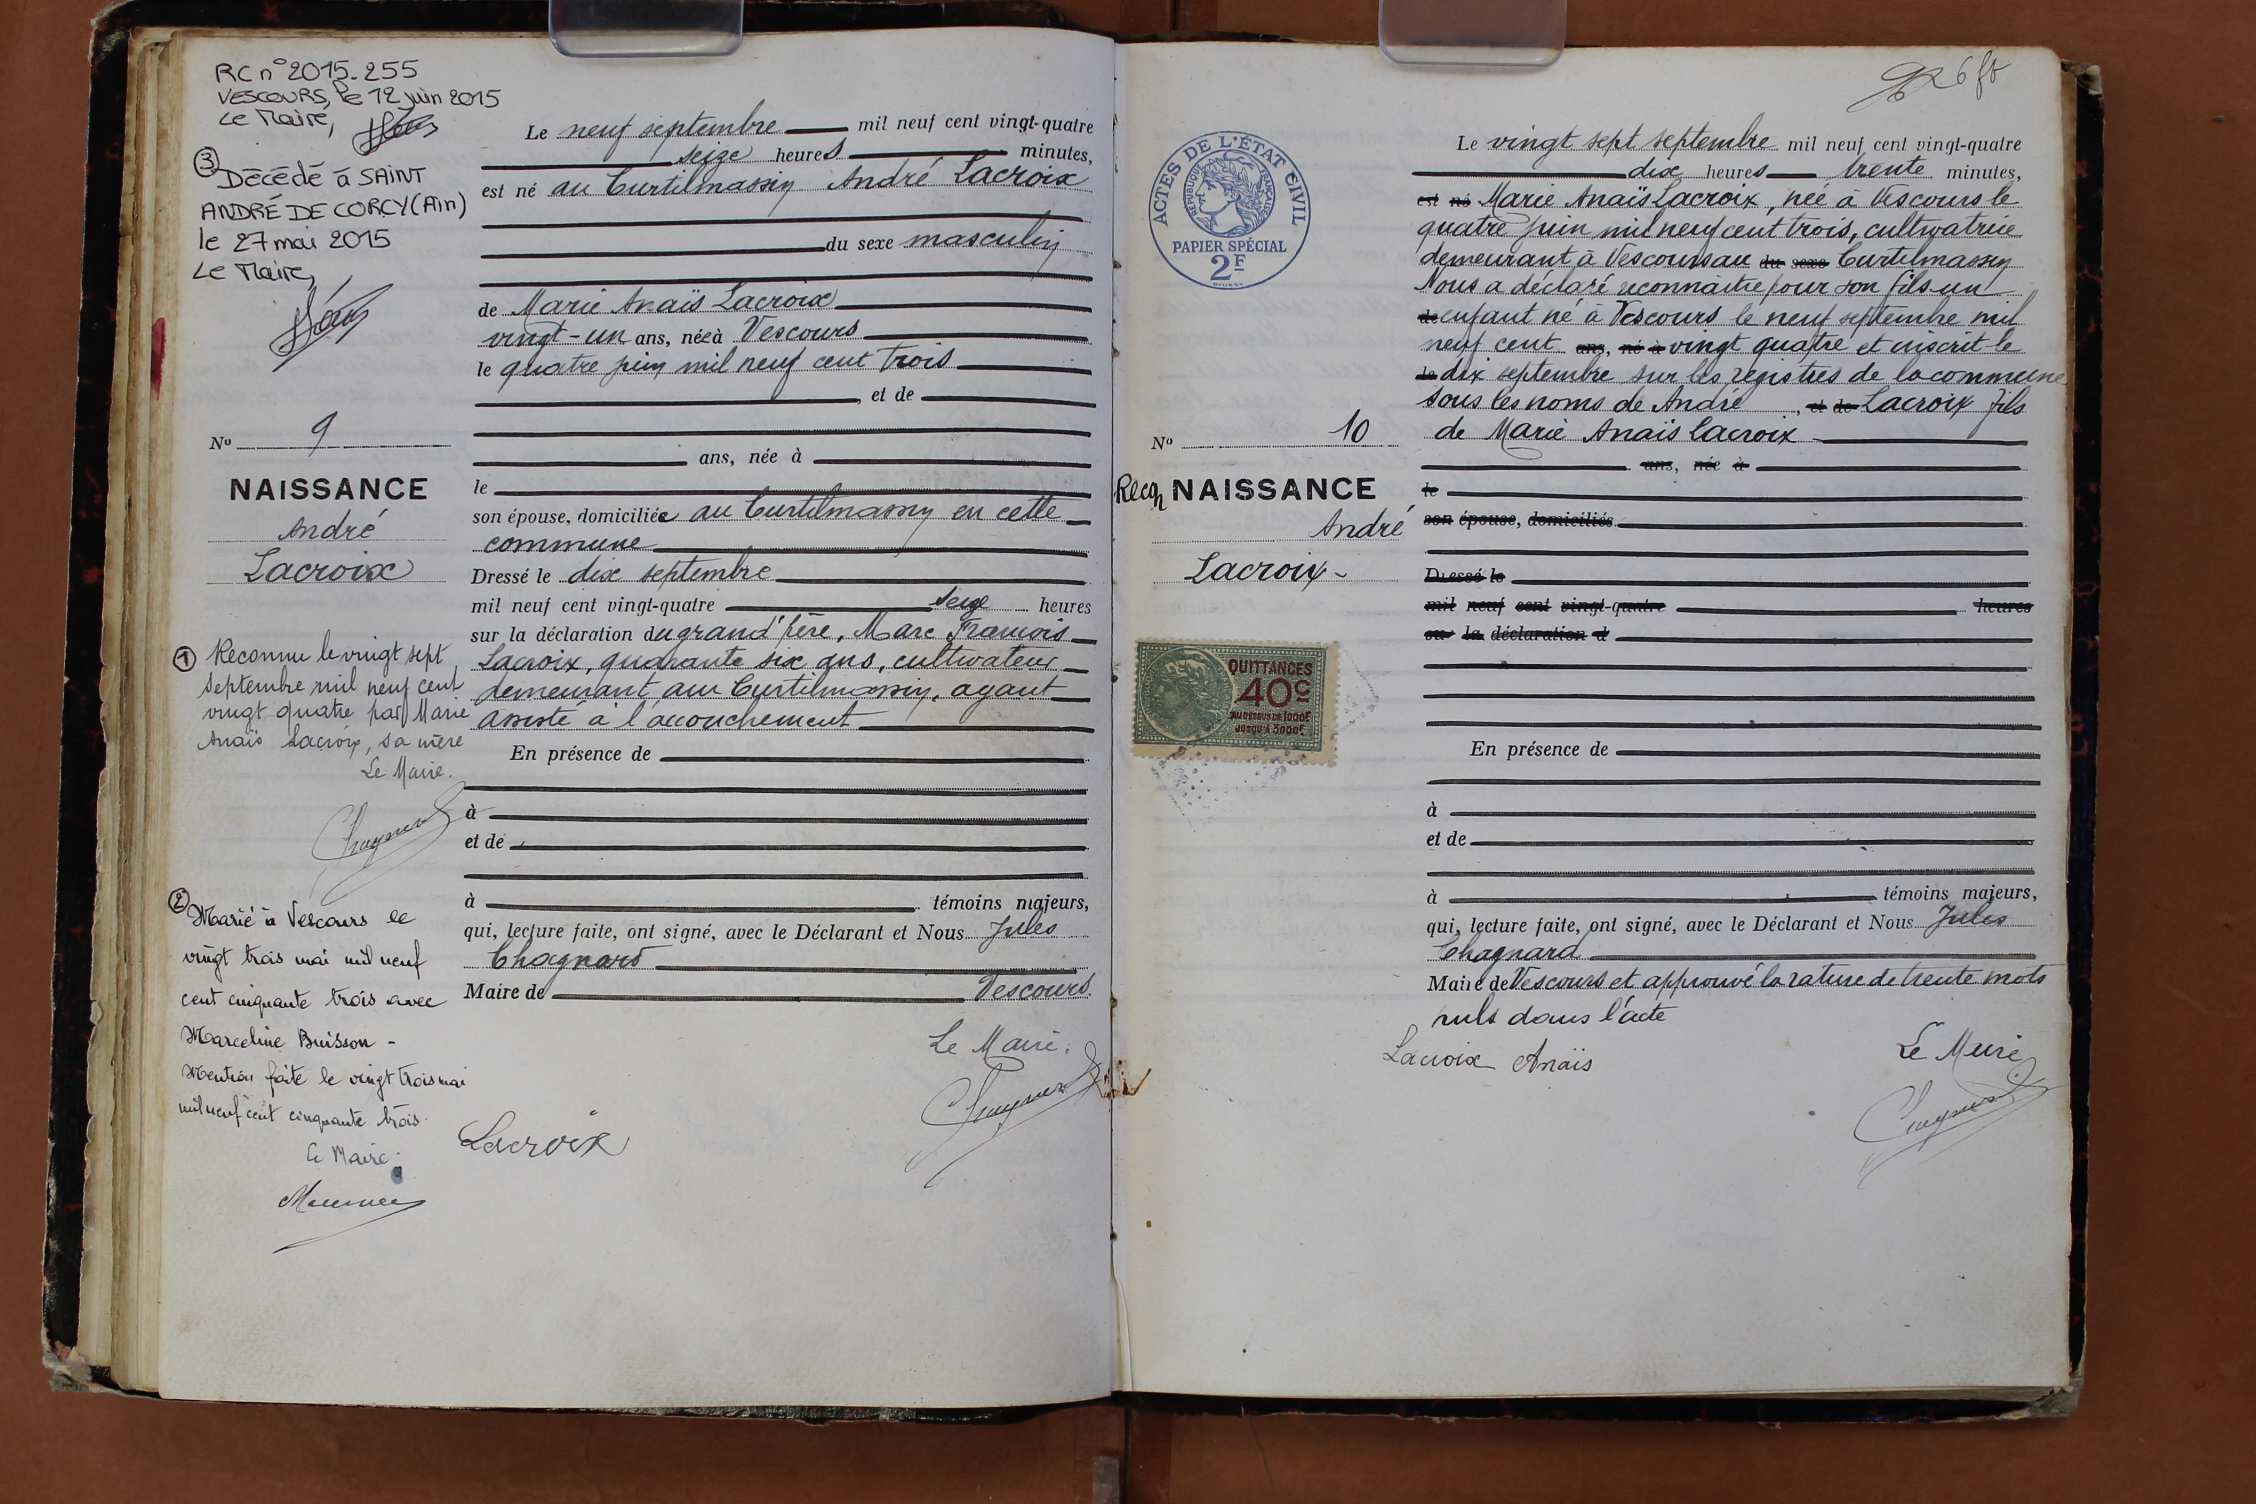 RC n° 2015-255
VESCOURS, le 12 juin 2015
Le Maire,
③
Décédé à SAINT
ANDRÉ DE CORCY (Ain)
le 27 mai 2015
Le Maire,
N° 9
NAISSANCE
André
Lacroix
① Reconnu le vingt sept
septembre mil neuf cent
vingt quatre par Marie
Anaïs Lacroix, sa mère
Le Maire.
②
Marié à Vescours le
vingt trois mai mil neuf
cent cinquante trois avec
Marceline Buisson -
Mention faite le vingt trois mai
mil neuf cent cinquante trois.
Le Maire.
Le neuf septembre mil neuf cent vingt-quatre
seize heures minutes,
est né au Curtilmassin André Lacroix
du sexe masculin
de Marie Anaïs Lacroix
vingt-un ans, née à Vescours
le quatre juin mil neuf cent trois
, et de
ans, née à
le
son épouse, domiciliée au Curtilmassin en cette
commune
Dressé le dix septembre
mil neuf cent vingt-quatre seize heures
sur la déclaration du grand'père, Marc François
Lacroix, quarante six ans, cultivateur
demeurant au Curtilmassin, ayant
assisté à l'accouchement
En présence de
à
et de
à témoins majeurs,
qui, lecture faite, ont signé, avec le Déclarant et Nous Jules
Chagnard
Maire de Vescours
Le Maire.
Lacroix
ACTES DE L'ÉTAT CIVIL
RÉPUBLIQUE FRANÇAISE
PAPIER SPÉCIAL
2F
N° 10
Recon NAISSANCE
André
Lacroix-
QUITTANCES
40c
AU DESSUS DE 1000F
JUSQU'À 3000F
Le vingt sept septembre mil neuf cent vingt-quatre
dix heures trente minutes,
est né Marie Anaïs Lacroix, née à Vescours le
quatre juin mil neuf cent trois, cultivatrice
demeurant à Vescours au du sexe Curtilmassin
Nous a déclaré reconnaitre pour son fils un
de enfant né à Vescours le neuf septembre mil
neuf cent ans, né à vingt quatre et inscrit le
le dix septembre sur les registres de la commune
sous les noms de André , et de Lacroix fils
de Marie Anaïs Lacroix
ans, née à
le
son épouse, domiciliés
Dressé le
mil neuf cent vingt-quatre heures
sur la déclaration d
En présence de
à
et de
à témoins majeurs,
qui, lecture faite, ont signé, avec le Déclarant et Nous Jules
Chagnard
Maire de Vescours et approuvé la rature de trente mots
nuls dans l'acte
Lacroix Anaïs
Le Maire